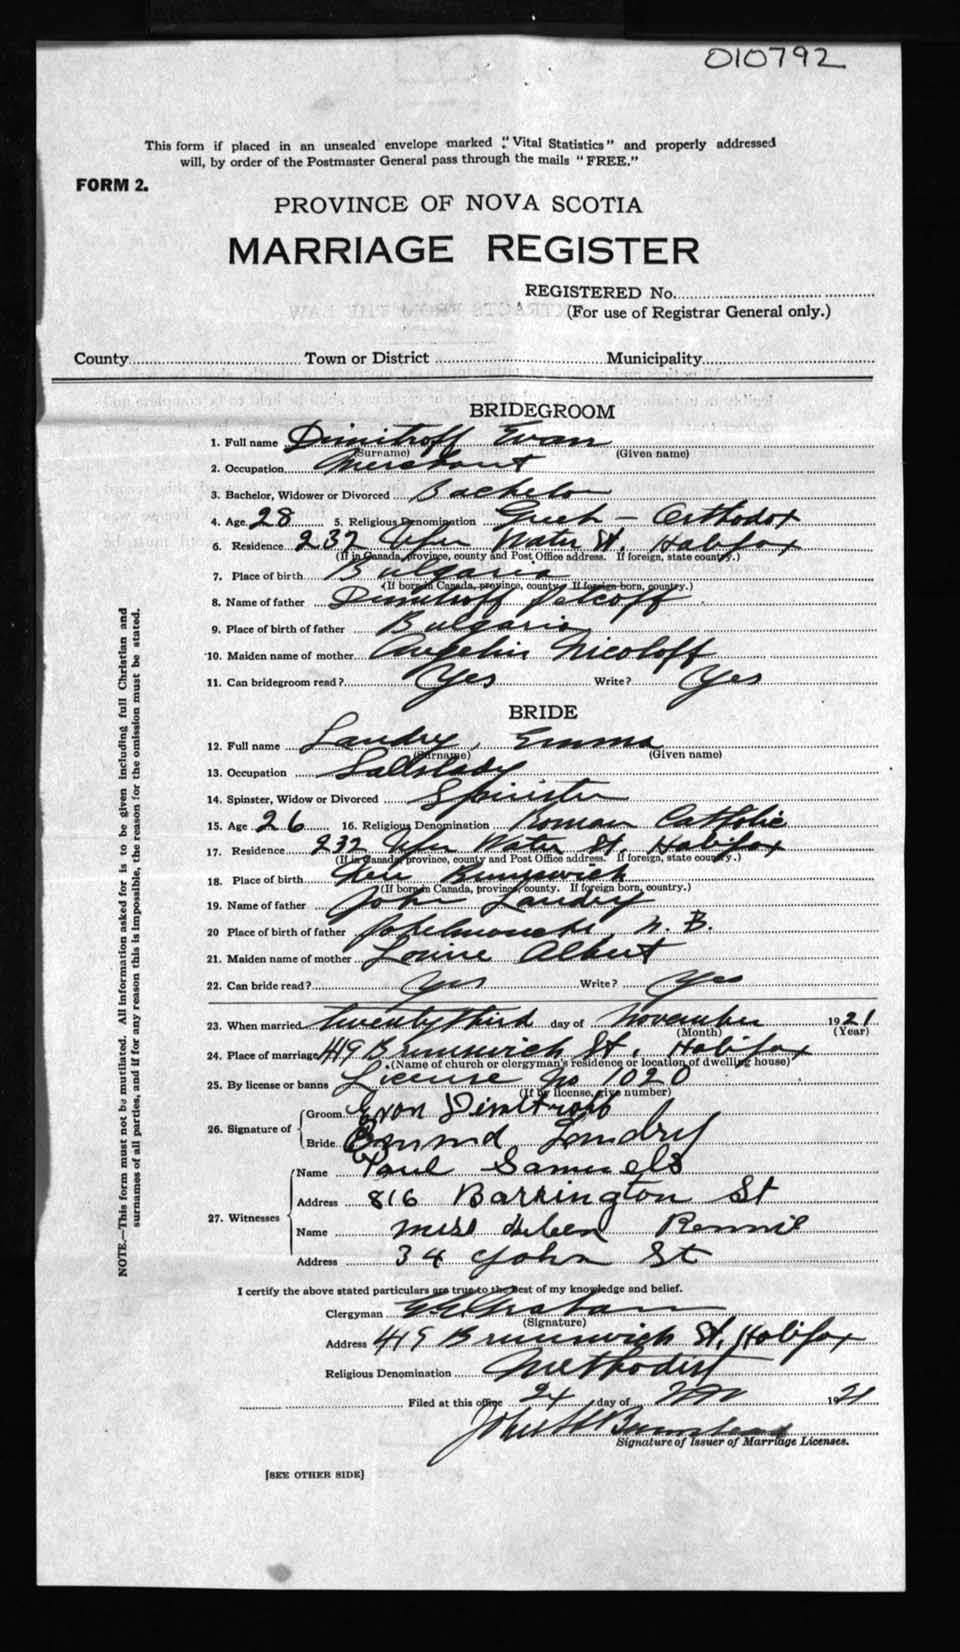 010792
This form if placed in an unsealed envelope marked "Vital Statistics" and properly addressed
will, by order of the Postmaster General pass through the mails "FREE."
FORM 2.
PROVINCE OF NOVA SCOTIA
MARRIAGE REGISTER
REGISTERED No.
(For use of Registrar General only.)
County Town or District Municipality
BRIDEGROOM
1. Full name Dimitroff Evan
(Surname) (Given name)
2. Occupation Merchant
3. Bachelor, Widower or Divorced Bachelor
4. Age 28 5. Religious Denomination Greek - Orthodox
6. Residence 232 Upper Water St. Halifax
(If in Canada, province, county and Post Office address. If foreign, state country.)
7. Place of birth Bulgaria
(If born in Canada, province, county. If foreign born, country.)
8. Name of father Dimitroff
9. Place of birth of father Bulgaria
10. Maiden name of mother Angelin Nicoloff
11. Can bridegroom read? Yes Write? Yes
BRIDE
12. Full name Landry, Emma
(Surname) (Given name)
13. Occupation Saleslady
14. Spinster, Widow or Divorced Spinster
15. Age 26 16. Religious Denomination Roman Catholic
17. Residence 232 Upper Water St. Halifax
(If in Canada, province, county and Post Office address. If foreign, state country.)
18. Place of birth New Brunswick
(If born in Canada, province, county. If foreign born, country.)
19. Name of father John Landry
20 Place of birth of father N. B.
21. Maiden name of mother Louise Albert
22. Can bride read? Yes Write? Yes
23. When married twenty third day of November 1921
(Month) (Year)
24. Place of marriage 419 Brunswick St. Halifax
(Name of church or clergyman's residence or location of dwelling house)
25. By license or banns License No 1020
(If by license, give number)
26. Signature of Groom Evan Dimitroff
Bride Landry
27. Witnesses Name Paul Samuels
Address 816 Barrington St
Name Miss Helen Rennie
Address 34 John St
I certify the above stated particulars are true to the best of my knowledge and belief.
Clergyman Graham
(Signature)
Address 419 Brunswick St. Halifax
Religious Denomination Methodist
Filed at this office 24 day of Nov 1921
John
Signature of Issuer of Marriage Licenses.
[SEE OTHER SIDE]
NOTE.—This form must not be mutilated. All information asked for is to be given including full Christian and
surnames of all parties, and if for any reason this is impossible, the reason for the omission must be stated.